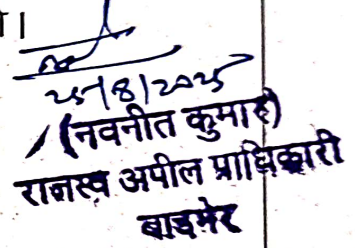 ।
25/8/2025
(नवनीत कुमार)
राजस्व अपील प्राधिकारी
बाड़मेर